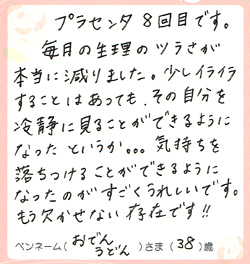 プラセンタ8回目です。
毎月の生理のツラさが
本当に減りました。少しイライラ
することはあっても、その自分を
冷静に見ることができるように
なったというか。。。気持ちを
落ちつけることができるように
なったのがすごくうれしいです。
もう欠かせない存在です!!
ペンネーム(おでんうどん)さま(38)歳